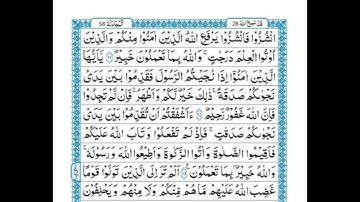 قَدْ سَمِعَ اللّٰهُ 28
اَلْمُجَادَلَة 58
انْشُزُوْا فَانْشُزُوْا يَرْفَعِ اللّٰهُ الَّذِيْنَ اٰمَنُوْا مِنْكُمْ وَالَّذِيْنَ
اُوْتُوا الْعِلْمَ دَرَجٰتٍ وَاللّٰهُ بِمَا تَعْمَلُوْنَ خَبِيْرٌ ۝۱۱ يٰٓاَيُّهَا
الَّذِيْنَ اٰمَنُوْٓا اِذَا نَاجَيْتُمُ الرَّسُوْلَ فَقَدِّمُوْا بَيْنَ يَدَيْ
نَجْوٰىكُمْ صَدَقَةً ذٰلِكَ خَيْرٌ لَّكُمْ وَاَطْهَرُ فَاِنْ لَّمْ تَجِدُوْا
فَاِنَّ اللّٰهَ غَفُوْرٌ رَّحِيْمٌ ۝۱۲ ءَاَشْفَقْتُمْ اَنْ تُقَدِّمُوْا بَيْنَ يَدَيْ
نَجْوٰىكُمْ صَدَقٰتٍ فَاِذْ لَمْ تَفْعَلُوْا وَتَابَ اللّٰهُ عَلَيْكُمْ
فَاَقِيْمُوا الصَّلٰوةَ وَاٰتُوا الزَّكٰوةَ وَاَطِيْعُوا اللّٰهَ وَرَسُوْلَهٗ
وَاللّٰهُ خَبِيْرٌۢ بِمَا تَعْمَلُوْنَ ۝۱۳ اَلَمْ تَرَ اِلَى الَّذِيْنَ تَوَلَّوْا قَوْمًا
غَضِبَ اللّٰهُ عَلَيْهِمْ مَا هُمْ مِّنْكُمْ وَلَا مِنْهُمْ وَيَحْلِفُوْنَ